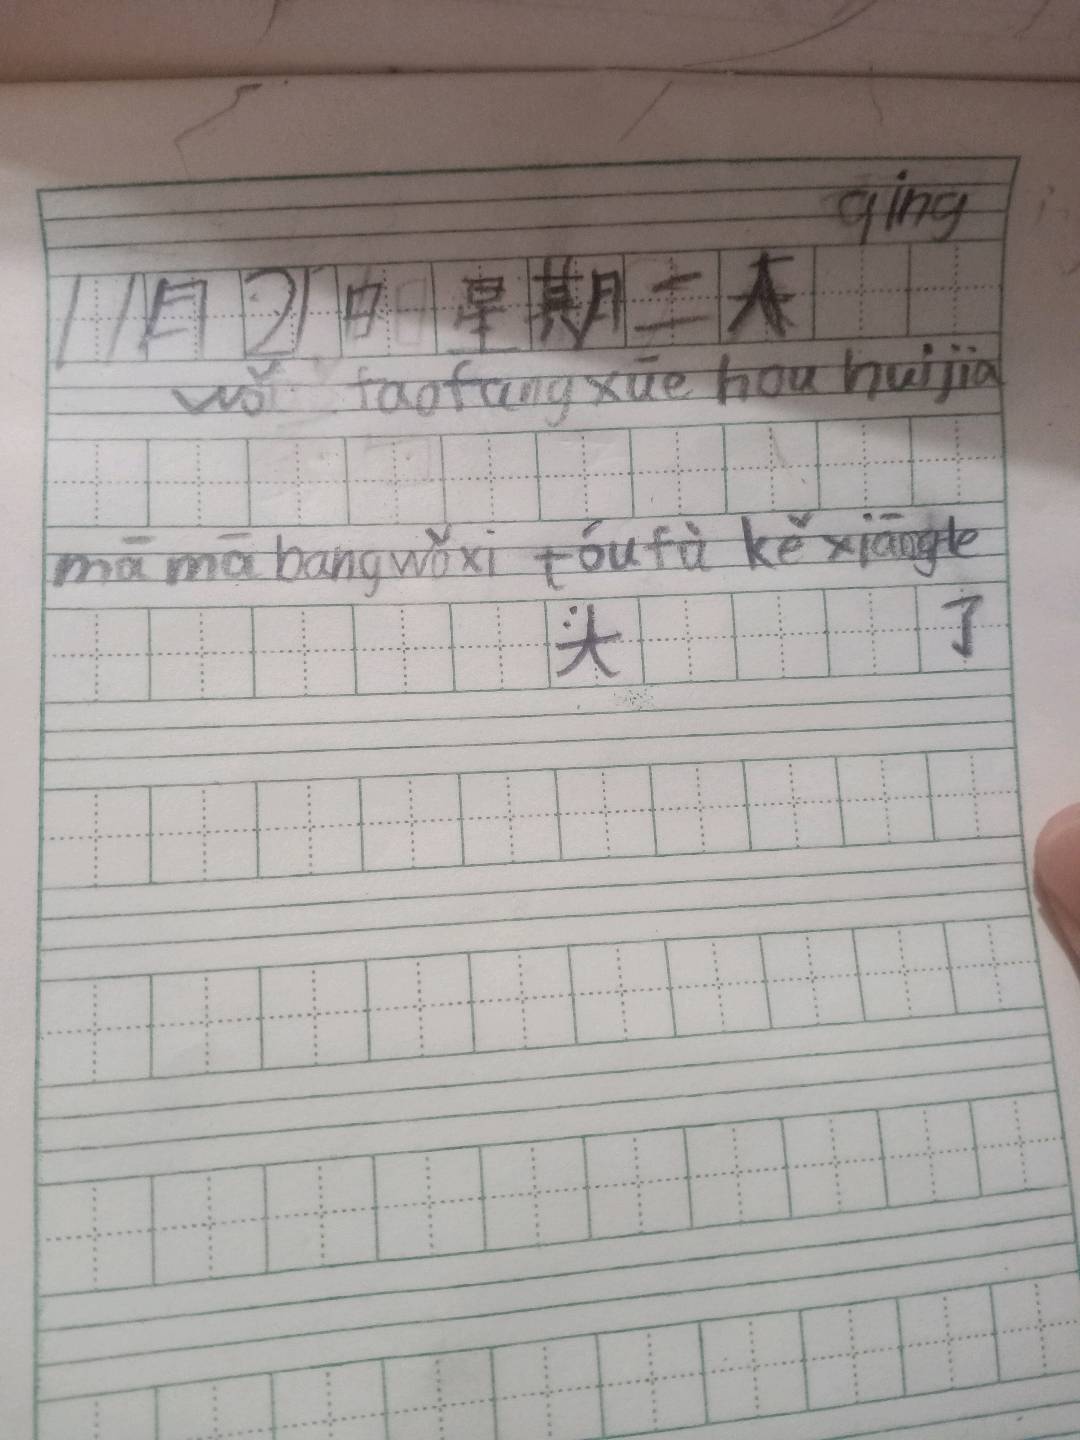 qíng
11月21日 星期二 天
wǒ taofang xūe hou huijia
mā mā bang wǒ xi tóu fà kě xiāng le
头 了